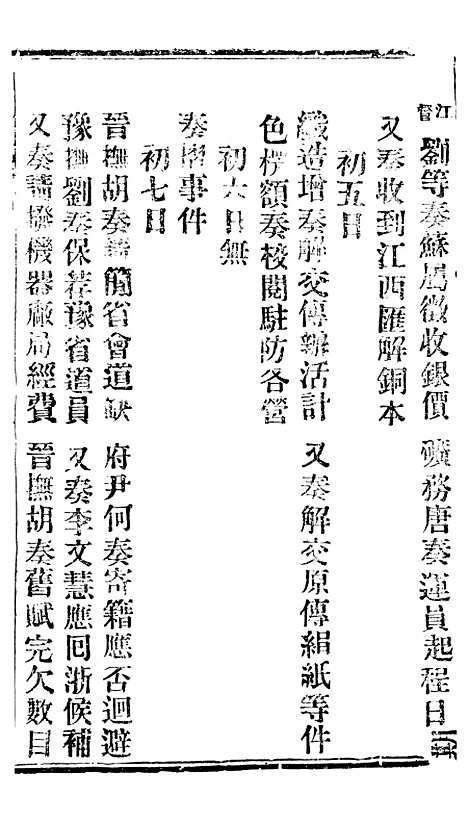 江督劉等奏蘇屬徵收銀價　礦務唐奏運員起程日期
又奏收到江西匯解銅本
初五日
織造增奏解交傳辦活計　又奏解交原傳絹紙等件
色楞額奏校閱駐防各營
初六日無
奏摺事件
初七日
晉撫胡奏請簡省會道缺　府尹何奏寄籍應否迴避
豫撫劉奏保荐豫省道員　又奏李文慧應回浙候補
又奏請撥機器廠局經費　晉撫胡奏舊賦完欠數目